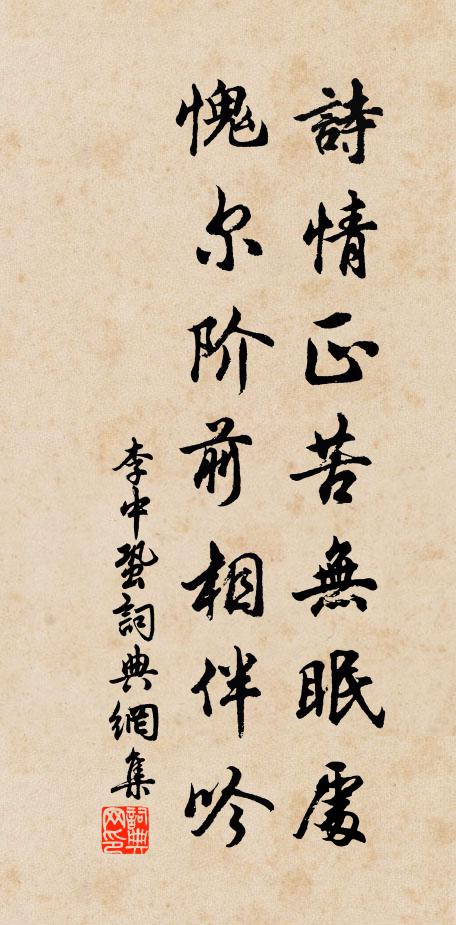 詩情正苦無眠處
愧尔阶前相伴吟
李中蛩詞典網集
詞典网印